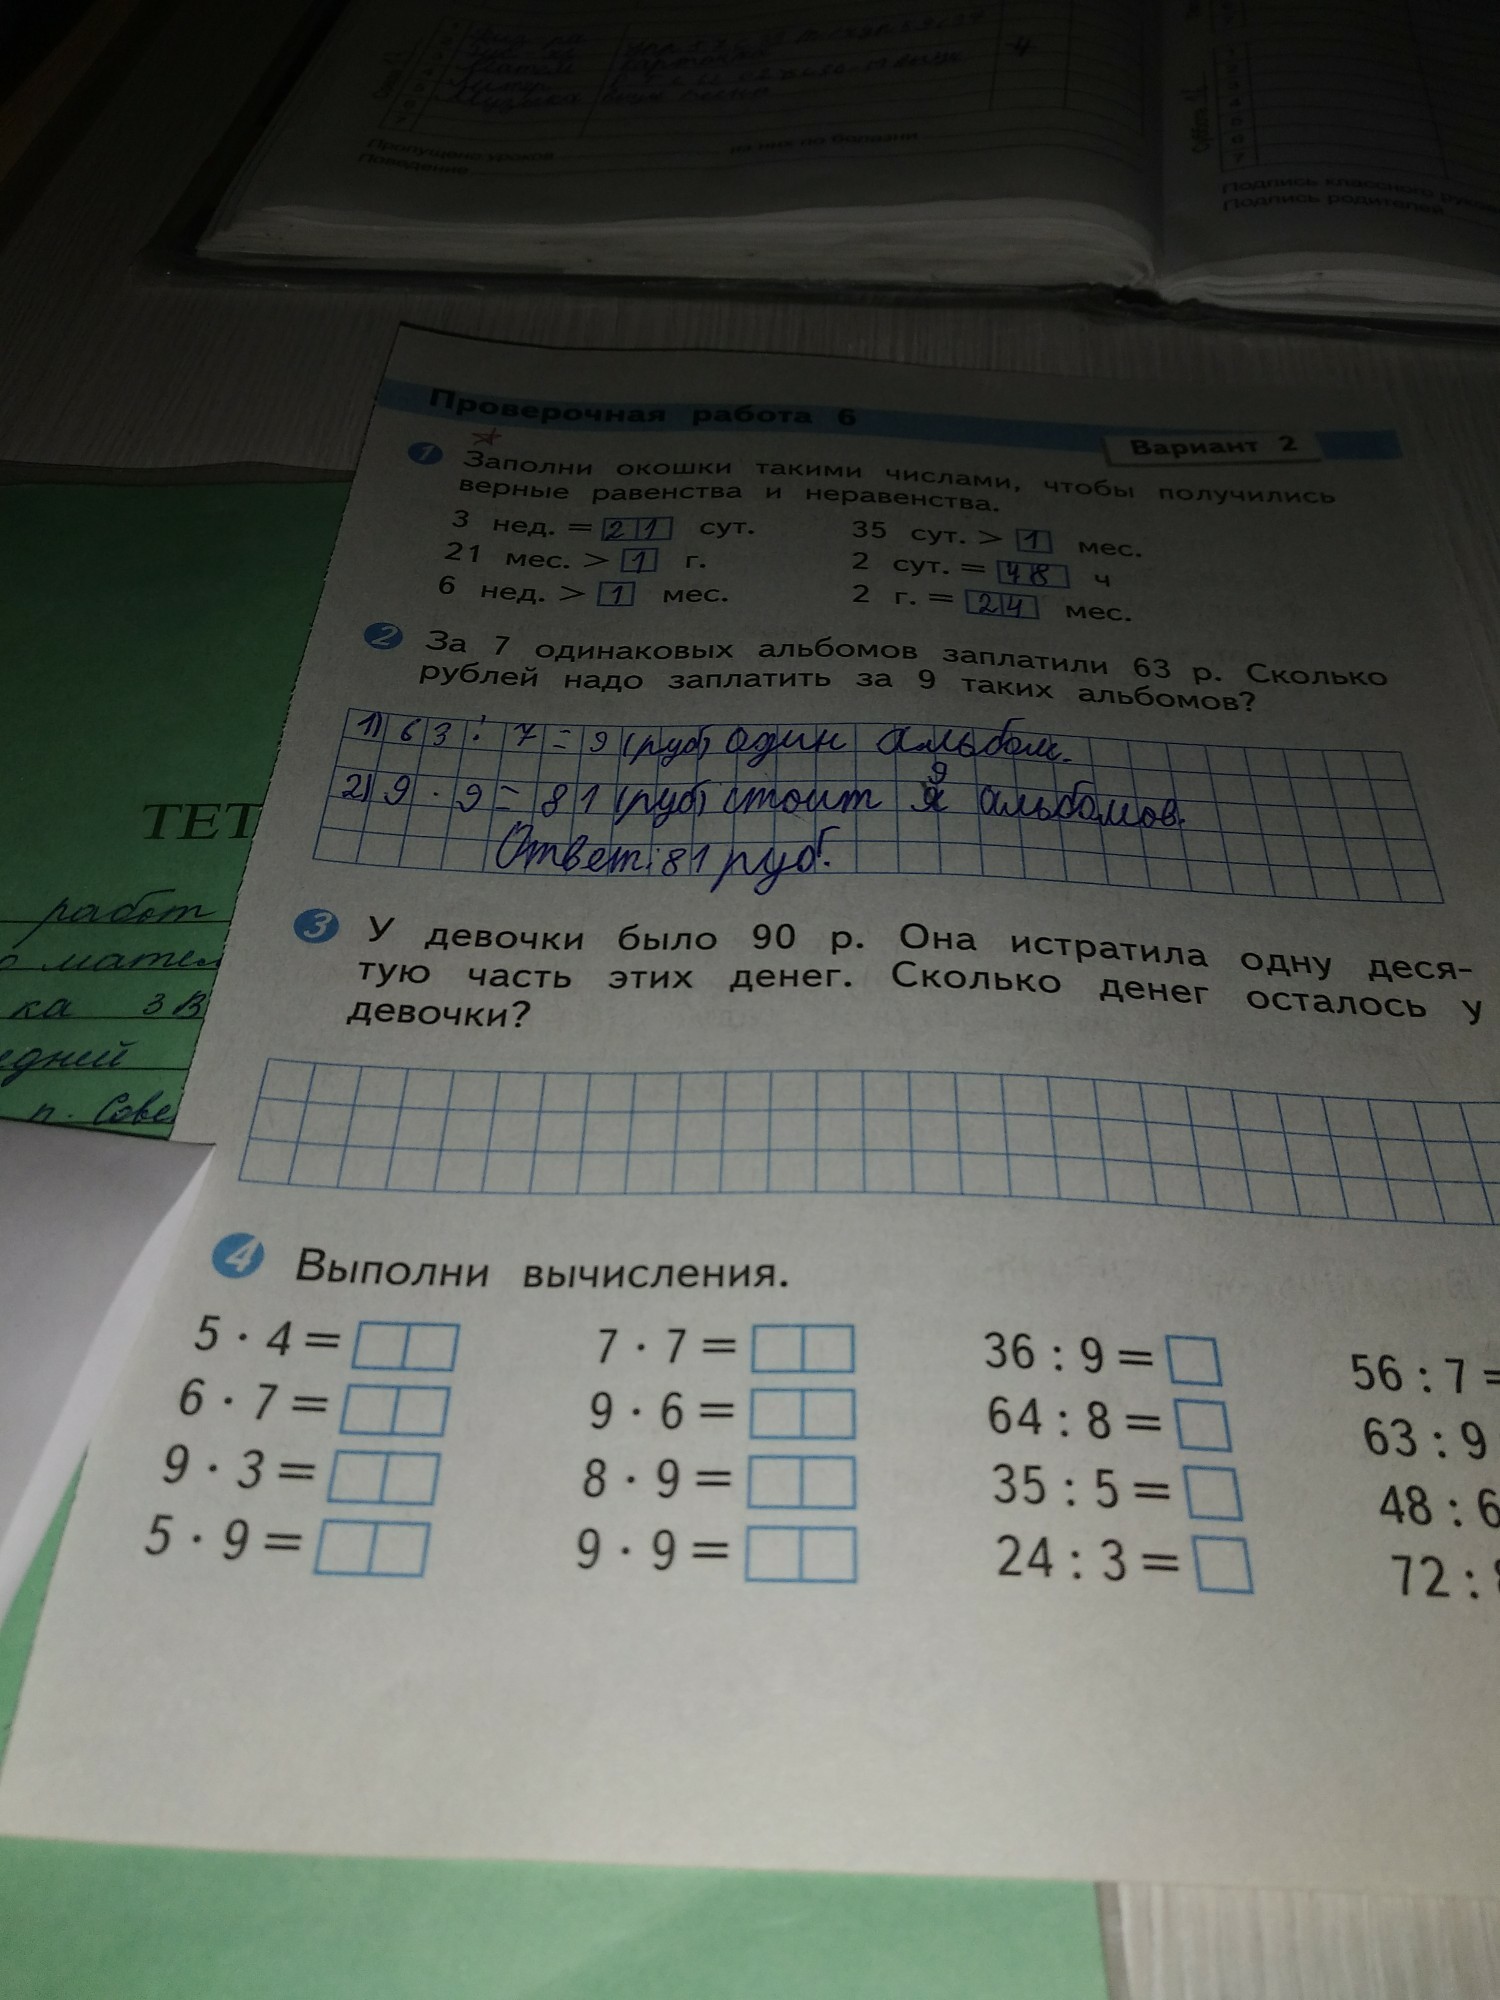 Пропущено уроков из них по болезни
Поведение
Подпись классного
Подпись родителей
Проверочная работа 6
Вариант 2
1 Заполни окошки такими числами, чтобы получились
верные равенства и неравенства.
3 нед. = 21 сут. 35 сут. > 1 мес.
21 мес. > 1 г. 2 сут. = 48 ч
6 нед. > 1 мес. 2 г. = 24 мес.
2 За 7 одинаковых альбомов заплатили 63 р. Сколько
рублей надо заплатить за 9 таких альбомов?
1) 63 : 7 = 9 (руб) один альбом.
2) 9 · 9 = 81 (руб) стоит 9 альбомов.
Ответ: 81 руб.
3 У девочки было 90 р. Она истратила одну деся-
тую часть этих денег. Сколько денег осталось у
девочки?
4 Выполни вычисления.
5 · 4 = 7 · 7 = 36 : 9 = 56 : 7 =
6 · 7 = 9 · 6 = 64 : 8 = 63 : 9
9 · 3 = 8 · 9 = 35 : 5 = 48 : 6
5 · 9 = 9 · 9 = 24 : 3 = 72 : 8
ТЕТ
работ
о матем
ка 3В
едней
п. Сове